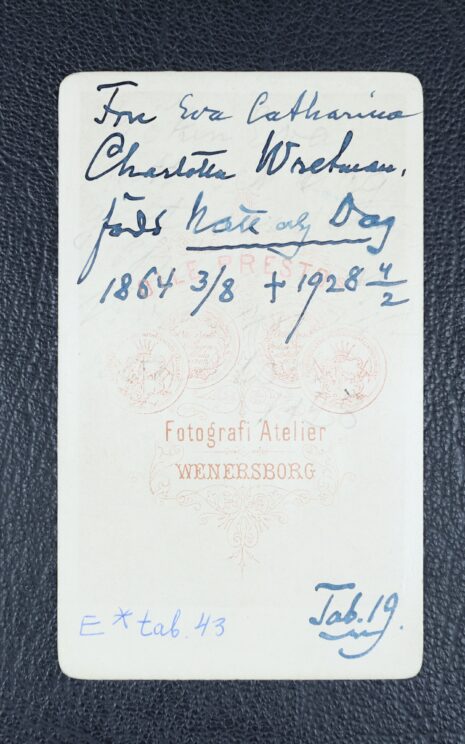 Fru Eva Catharina
Charlotta Wretman,
född Natt och Dag
1864 3/8 + 1928 4/2
Fotografi Atelier
WENERSBORG
E* tab. 43
Tab. 19.